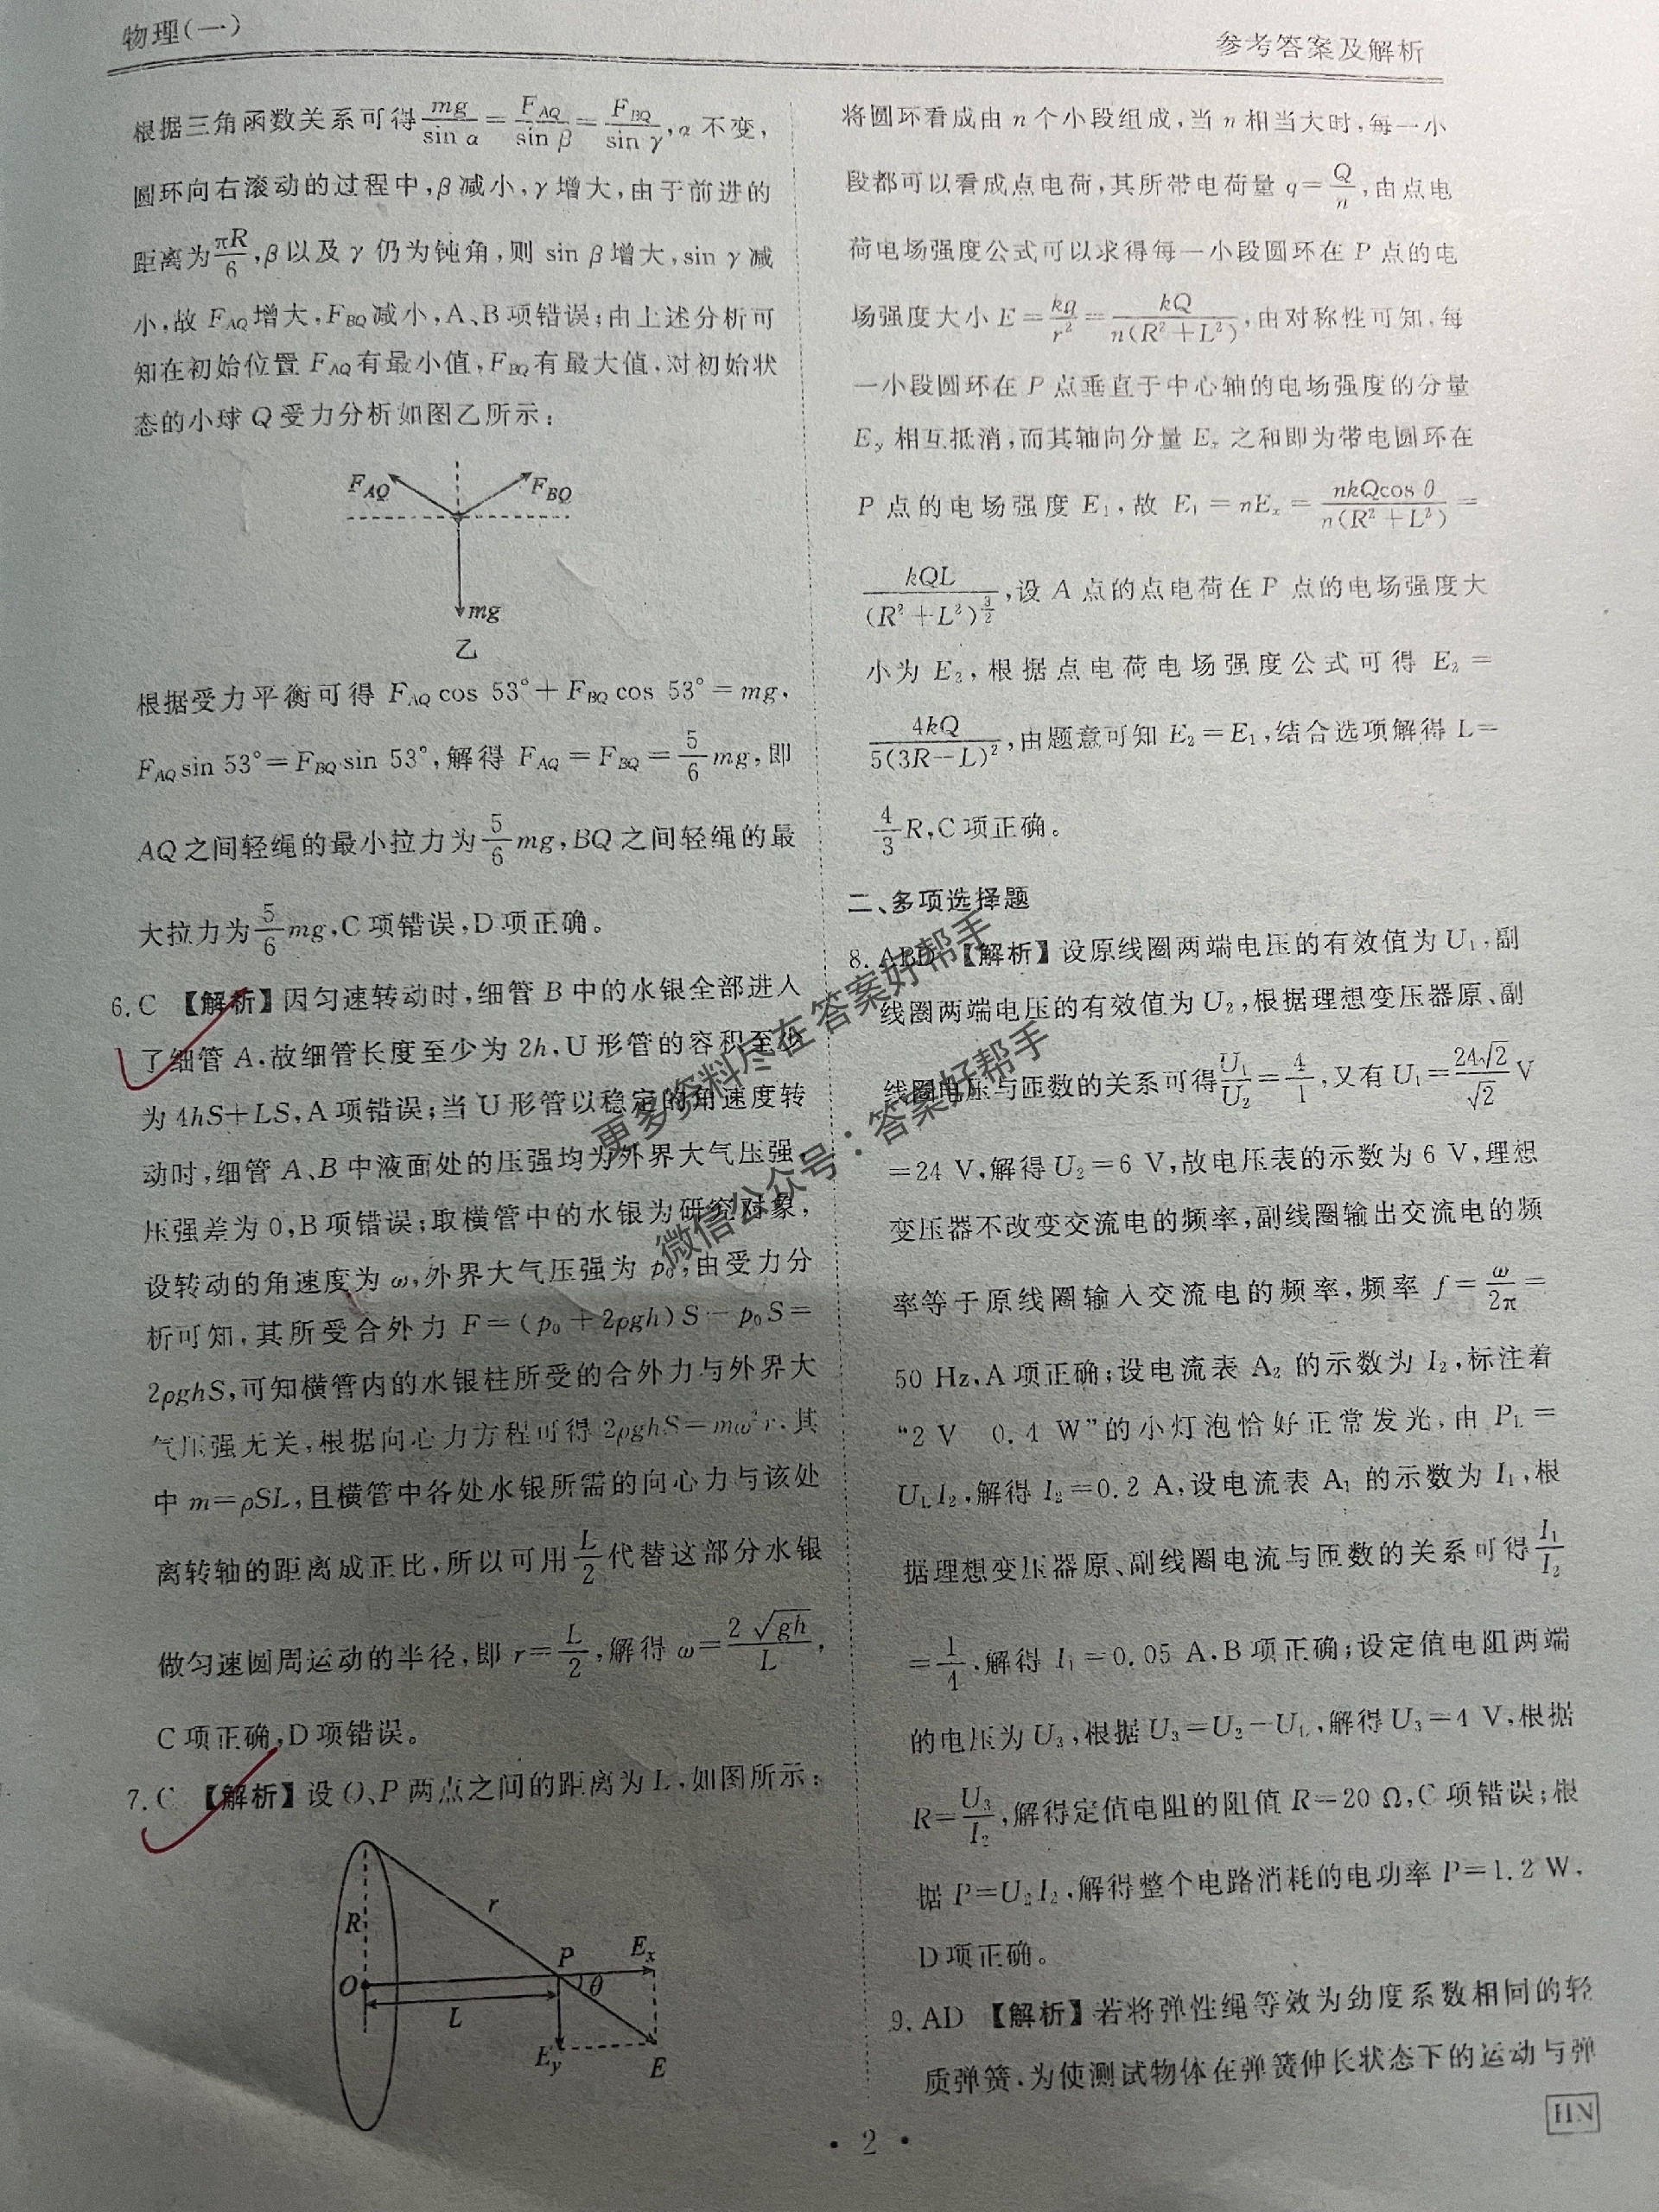 物理(一)
参考答案及解析
根据三角函数关系可得mg/sin α=F_AQ/sin β=F_BQ/sin γ,α不变,
圆环向右滚动的过程中,β减小,γ增大,由于前进的
距离为πR/6,β以及γ仍为钝角,则 sin β增大,sin γ减
小,故 F_AQ增大,F_BQ减小,A、B项错误;由上述分析可
知在初始位置 F_AQ有最小值,F_BQ有最大值,对初始状
态的小球 Q 受力分析如图乙所示:
F_AQ
F_BQ
mg
乙
根据受力平衡可得 F_AQ cos 53°+F_BQ cos 53°=mg,
F_AQ sin 53°=F_BQ sin 53°,解得 F_AQ=F_BQ=5/6 mg,即
AQ之间轻绳的最小拉力为5/6 mg,BQ之间轻绳的最
大拉力为5/6 mg,C项错误,D项正确。
6. C 【解析】因匀速转动时,细管 B 中的水银全部进入
了细管 A,故细管长度至少为 2h,U 形管的容积至少
为 4hS+LS,A 项错误;当 U 形管以稳定的角速度转
动时,细管 A、B 中液面处的压强均为外界大气压强,
压强差为 0,B项错误;取横管中的水银为研究对象,
设转动的角速度为 ω,外界大气压强为 p₀,由受力分
析可知,其所受合外力 F=(p₀+2ρgh)S-p₀S=
2ρghS,可知横管内的水银柱所受的合外力与外界大
气压强无关,根据向心力方程可得 2ρghS=mω²r,其
中 m=ρSL,且横管中各处水银所需的向心力与该处
离转轴的距离成正比,所以可用L/2代替这部分水银
做匀速圆周运动的半径,即 r=L/2,解得 ω=2√gh/L,
C项正确,D项错误。
7. C 【解析】设 O、P 两点之间的距离为 L,如图所示:
R
r
O
P
E_x
θ
L
E_y
E
将圆环看成由 n 个小段组成,当 n 相当大时,每一小
段都可以看成点电荷,其所带电荷量 q=Q/n,由点电
荷电场强度公式可以求得每一小段圆环在 P 点的电
场强度大小 E=kq/r²=kQ/n(R²+L²),由对称性可知,每
一小段圆环在 P 点垂直于中心轴的电场强度的分量
E_y 相互抵消,而其轴向分量 E_x 之和即为带电圆环在
P 点的电场强度 E₁,故 E₁=nE_x=nkQcos θ/n(R²+L²)=
kQL/(R²+L²)^(3/2),设 A 点的点电荷在 P 点的电场强度大
小为 E₂,根据点电荷电场强度公式可得 E₂=
4kQ/5(3R-L)²,由题意可知 E₂=E₁,结合选项解得 L=
4/3 R,C项正确。
二、多项选择题
8. ABD 【解析】设原线圈两端电压的有效值为 U₁,副
线圈两端电压的有效值为 U₂,根据理想变压器原、副
线圈电压与匝数的关系可得U₁/U₂=4/1,又有 U₁=24√2/√2 V
=24 V,解得 U₂=6 V,故电压表的示数为 6 V,理想
变压器不改变交流电的频率,副线圈输出交流电的频
率等于原线圈输入交流电的频率,频率 f=ω/2π=
50 Hz,A项正确;设电流表 A₂ 的示数为 I₂,标注着
“2 V 0.4 W”的小灯泡恰好正常发光,由 P_L=
U_L I₂,解得 I₂=0.2 A,设电流表 A₁ 的示数为 I₁,根
据理想变压器原、副线圈电流与匝数的关系可得I₁/I₂
=1/4,解得 I₁=0.05 A,B项正确;设定值电阻两端
的电压为 U₃,根据 U₃=U₂-U_L,解得 U₃=4 V,根据
R=U₃/I₂,解得定值电阻的阻值 R=20 Ω,C项错误;根
据 P=U₂I₂,解得整个电路消耗的电功率 P=1.2 W,
D项正确。
9. AD 【解析】若将弹性绳等效为劲度系数相同的轻
质弹簧,为使测试物体在弹簧伸长状态下的运动与弹
更多资料尽在答案好帮手
微信公众号:答案好帮手
· 2 ·
HN